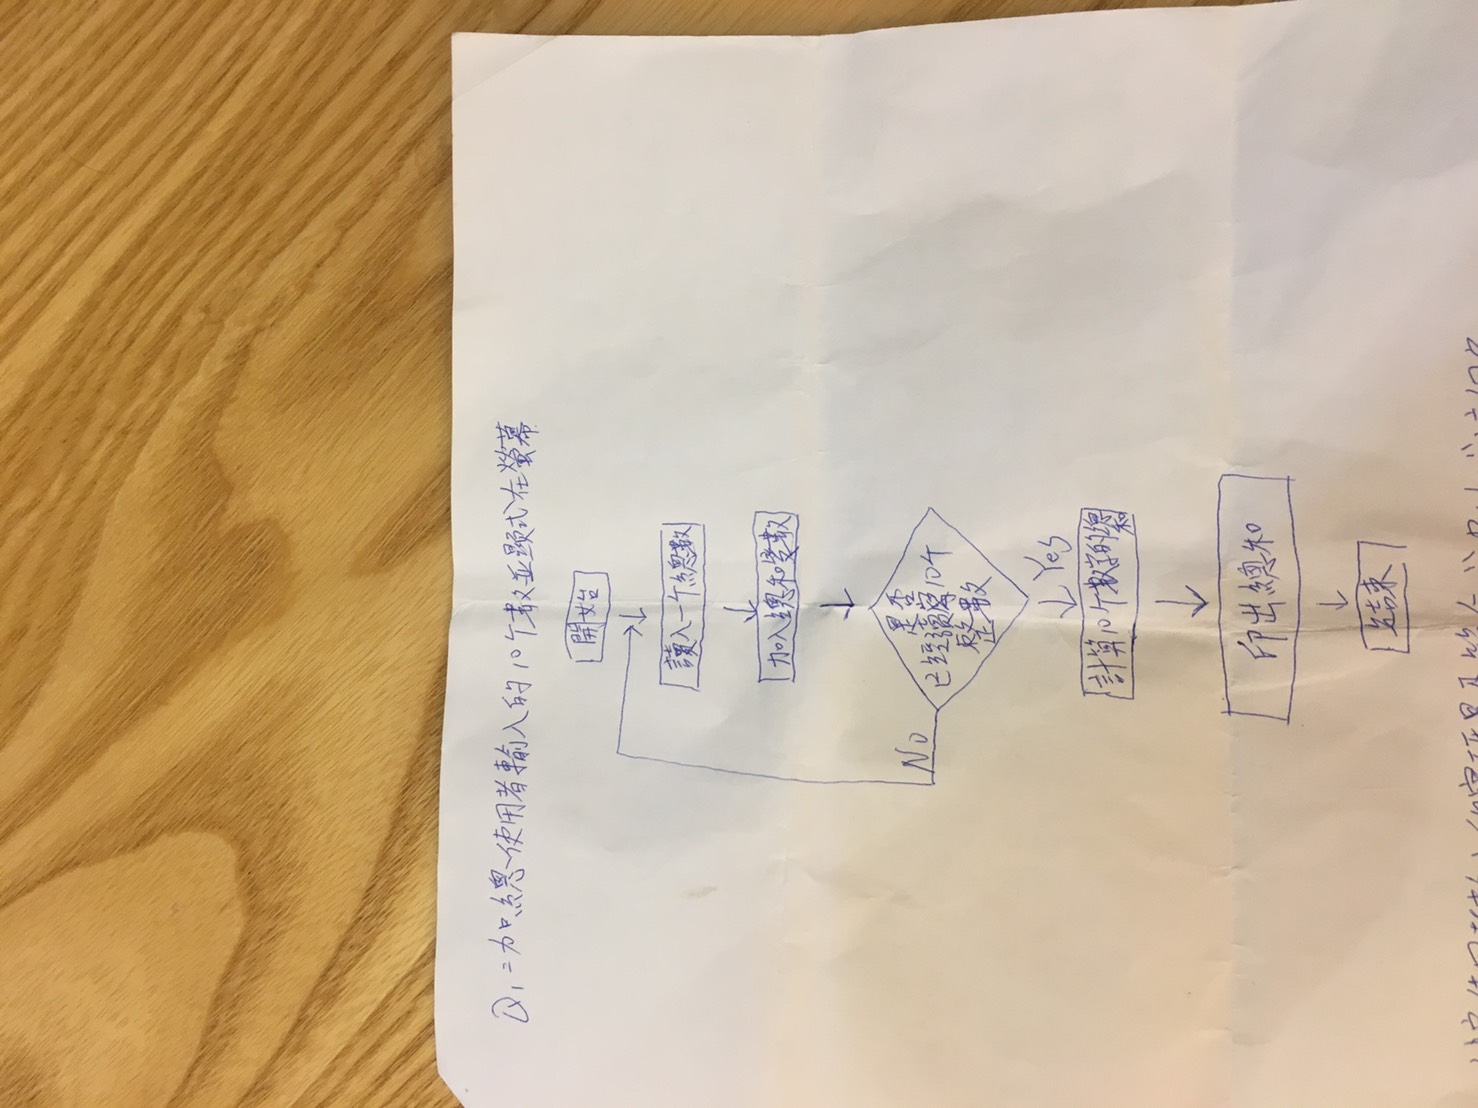 Q1=加總使用者輸入的10个數並顕式在螢幕
開始
讀入一个總數
加入總和變數
是否
已經讀寫10个
整數
No
Yes
計算10个數字的總和
印出總和
结束